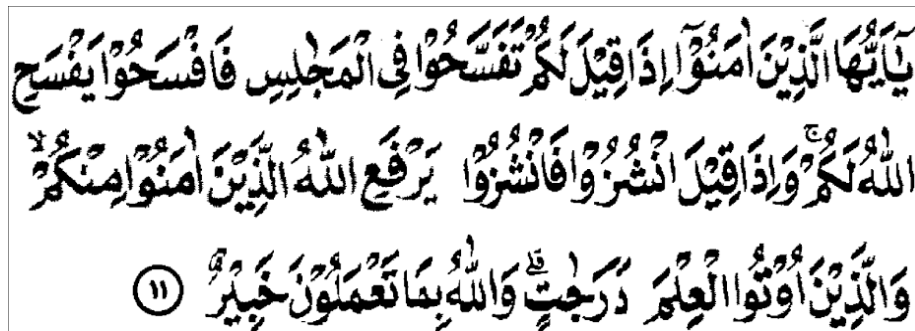 يٰٓاَيُّهَا الَّذِيْنَ اٰمَنُوْٓا اِذَا قِيْلَ لَكُمْ تَفَسَّحُوْا فِى الْمَجٰلِسِ فَافْسَحُوْا يَفْسَحِ
اللّٰهُ لَكُمْ ۚ وَاِذَا قِيْلَ انْشُزُوْا فَانْشُزُوْا يَرْفَعِ اللّٰهُ الَّذِيْنَ اٰمَنُوْا مِنْكُمْ ۙ
وَالَّذِيْنَ اُوْتُوا الْعِلْمَ دَرَجٰتٍ ۗ وَاللّٰهُ بِمَا تَعْمَلُوْنَ خَبِيْرٌ ۝١١